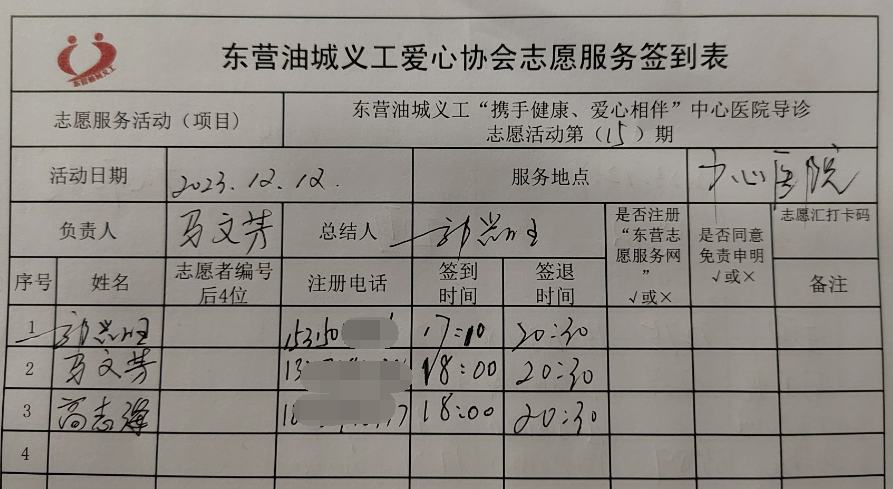 东营油城义工
东营油城义工爱心协会志愿服务签到表
志愿服务活动（项目）
东营油城义工“携手健康、爱心相伴”中心医院导诊
志愿活动第（15）期
活动日期 2023.12.12. 服务地点 中心医院
负责人 马文芳 总结人
是否注册
“东营志
愿服务网
”
√或×
是否同意
免责申明
√或×
志愿汇打卡码
备注
序号 姓名
志愿者编号
后4位
注册电话
签到
时间
签退
时间
1 15350 17:10 20:30
2 马文芳 13 18:00 20:30
3 高志强 18:00 20:30
4